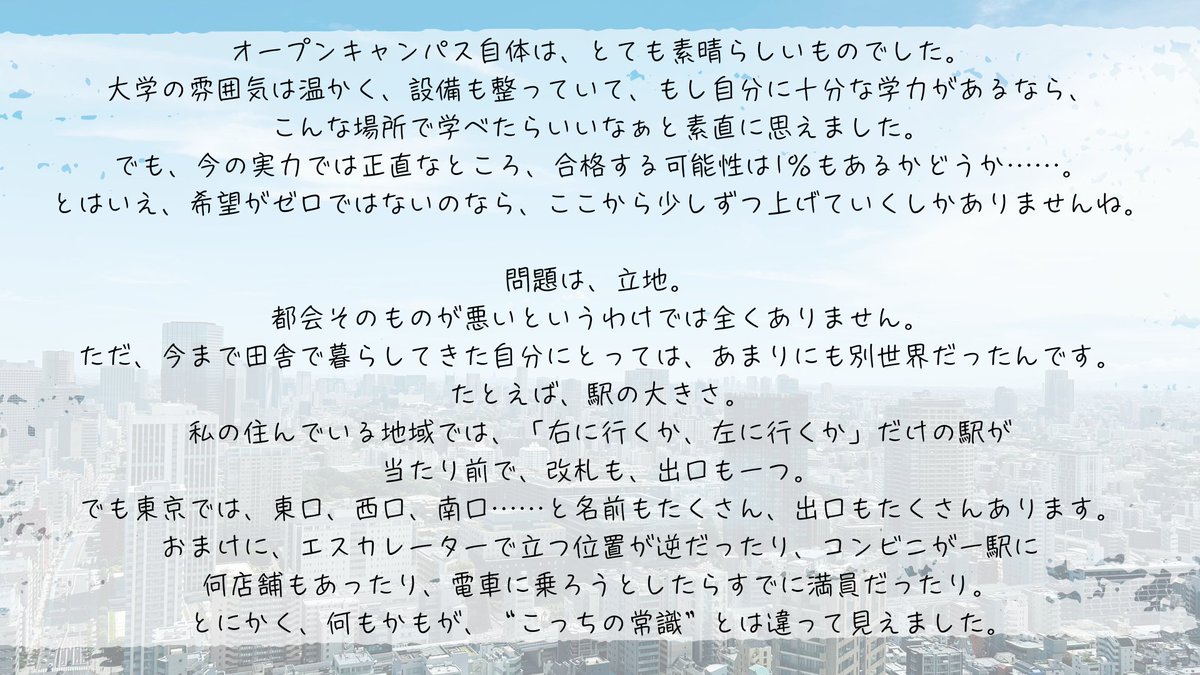 オープンキャンパス自体は、とても素晴らしいものでした。
大学の雰囲気は温かく、設備も整っていて、もし自分に十分な学力があるなら、
こんな場所で学べたらいいなぁと素直に思えました。
でも、今の実力では正直なところ、合格する可能性は1%もあるかどうか……。
とはいえ、希望がゼロではないのなら、ここから少しずつ上げていくしかありませんね。
問題は、立地。
都会そのものが悪いというわけでは全くありません。
ただ、今まで田舎で暮らしてきた自分にとっては、あまりにも別世界だったんです。
たとえば、駅の大きさ。
私の住んでいる地域では、「右に行くか、左に行くか」だけの駅が
当たり前で、改札も、出口も一つ。
でも東京では、東口、西口、南口……と名前もたくさん、出口もたくさんあります。
おまけに、エスカレーターで立つ位置が逆だったり、コンビニが一駅に
何店舗もあったり、電車に乗ろうとしたらすでに満員だったり。
とにかく、何もかもが、“こっちの常識”とは違って見えました。